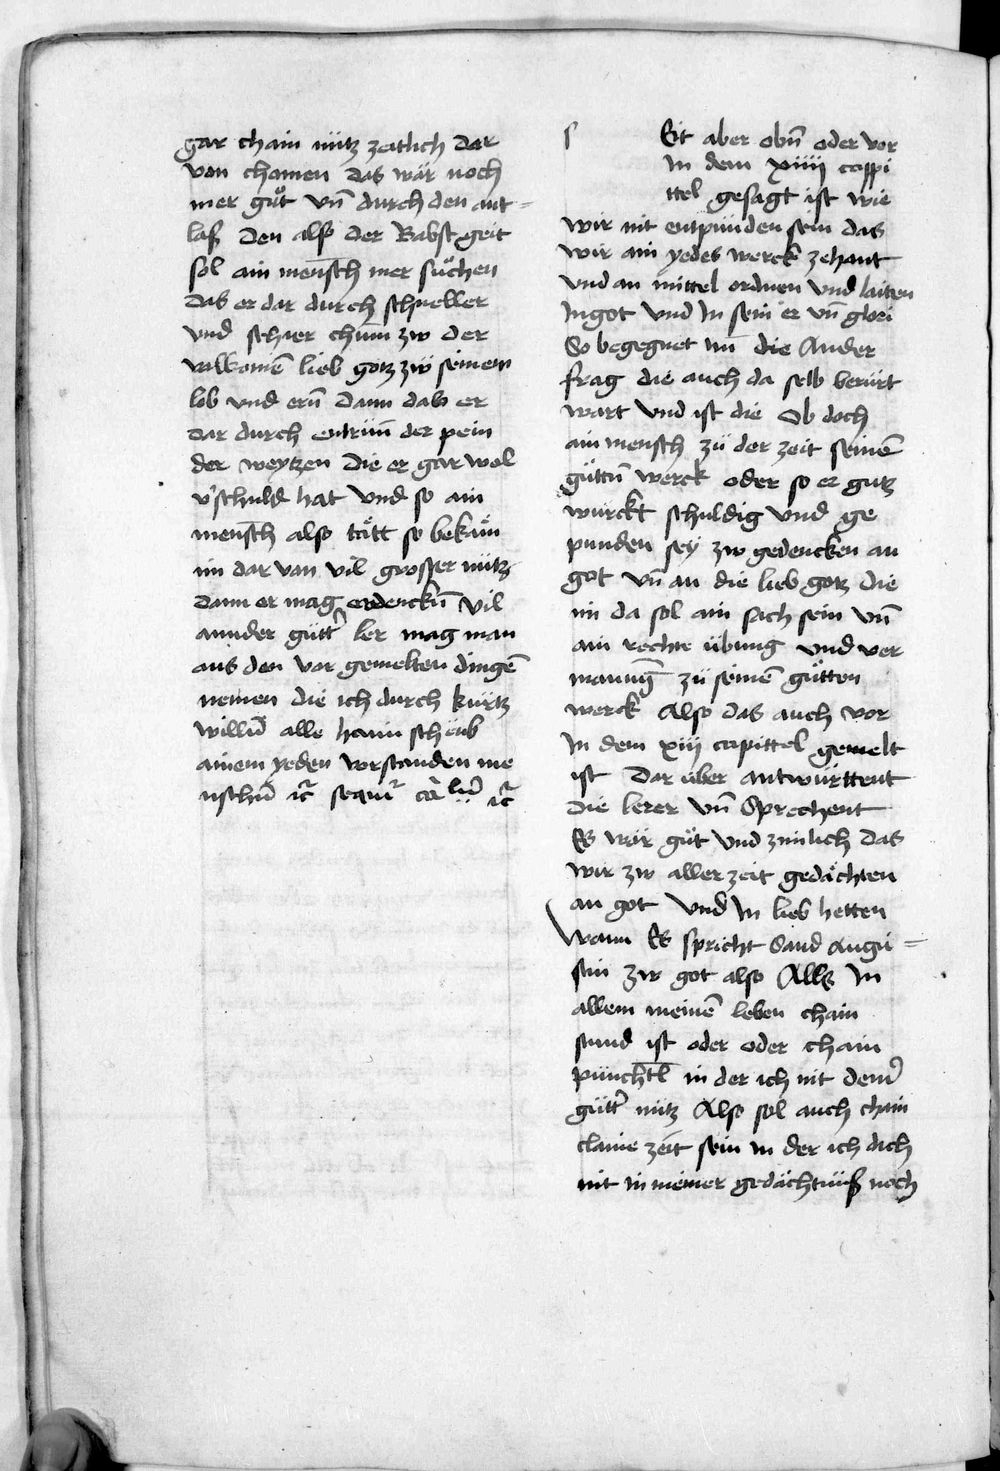 gar chain nütz zeitlich dar
von chomen das wär noch
mer gůt vn̄ durch den ant=
laß den alß der Babst geit
sol ain mensch mer sůchen
das er dar durch schneller
und schier chüm zw der
volkomē lieb gotz zw seinem
lob und ern̄ dann das er
dar durch entrinn̄ der pein
der weytzen die er gar wol
v'schuld hat Und so ain
mensch also tätt so bekäm
im dar von vil grosser nütz
dann er mag erdenckn̄ Vil
annder gütt' ler mag man
aus den vor gemelten dingē
nemen die ich durch kürtz
willn̄ alle haim schenb
ainem yeden vorstanden me
nschn̄ ic̄ sequit'
s Eit aber obn̄ oder vor
In dem xiiij cappi
ttel gesagt ist wie
wir nit entpünden sein das
wir ain yedes werck zehant
Und an mittel ordnen Und laitten
In got Und In sein er vn̄ glori
So begegnet nū die Ander
frag die auch da selb berürt
wart Und ist die Ob doch
ain mensch zü der zeit seinē
güttn̄ werck oder so er gutz
würckt schuldig Und ge
punden sey zw gedencken an
got vn̄ an die lieb gotz die
im da sol ain sach sein vn̄
ain rechte übung Und ver
manung zü seinē gůtten
werck Also das auch vor
In dem xiij capittel gemelt
ist Dar über antwürttent
die lerer vn̄ Sprechent
Es wär gůt Und zimlich das
wir zw aller zeit gedächten
an got Und In lieb hetten
Wann Es spricht Sand Augu=
stin zw got also Alls In
allem meinē leben chain
stund ist oder oder chain
pünchtl in der ich nit dein'
gütt' nütz Also sol auch chain
claine zeit sein in der ich dich
nit in meiner gedächtnüß noch